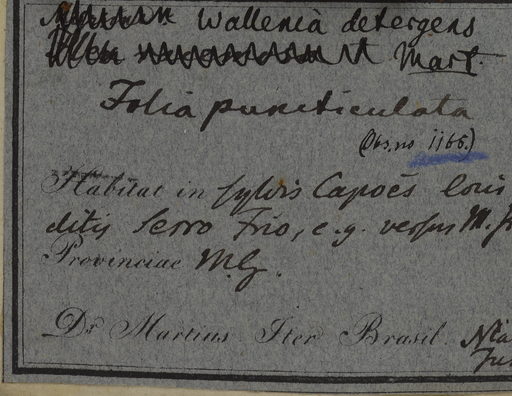 Wallenia detergens
Mart.
Folia puncticulata
(Obs. no 1166.)
Habitat in sylvis Capoës
ditis Serro Frio, e.g. versus M.
Provinciae M.G.
Dr Martius Iter Brasil.